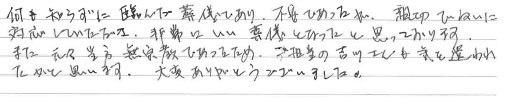 何も知らずに臨んだ葬儀であり、不安であったが、親切ていねいに
対応していただき、非常にいい葬儀となったと思っております。
また元々当方無宗教であったため、ご担当の吉川さんも気を遣われ
たかと思います。大変ありがとうございました。